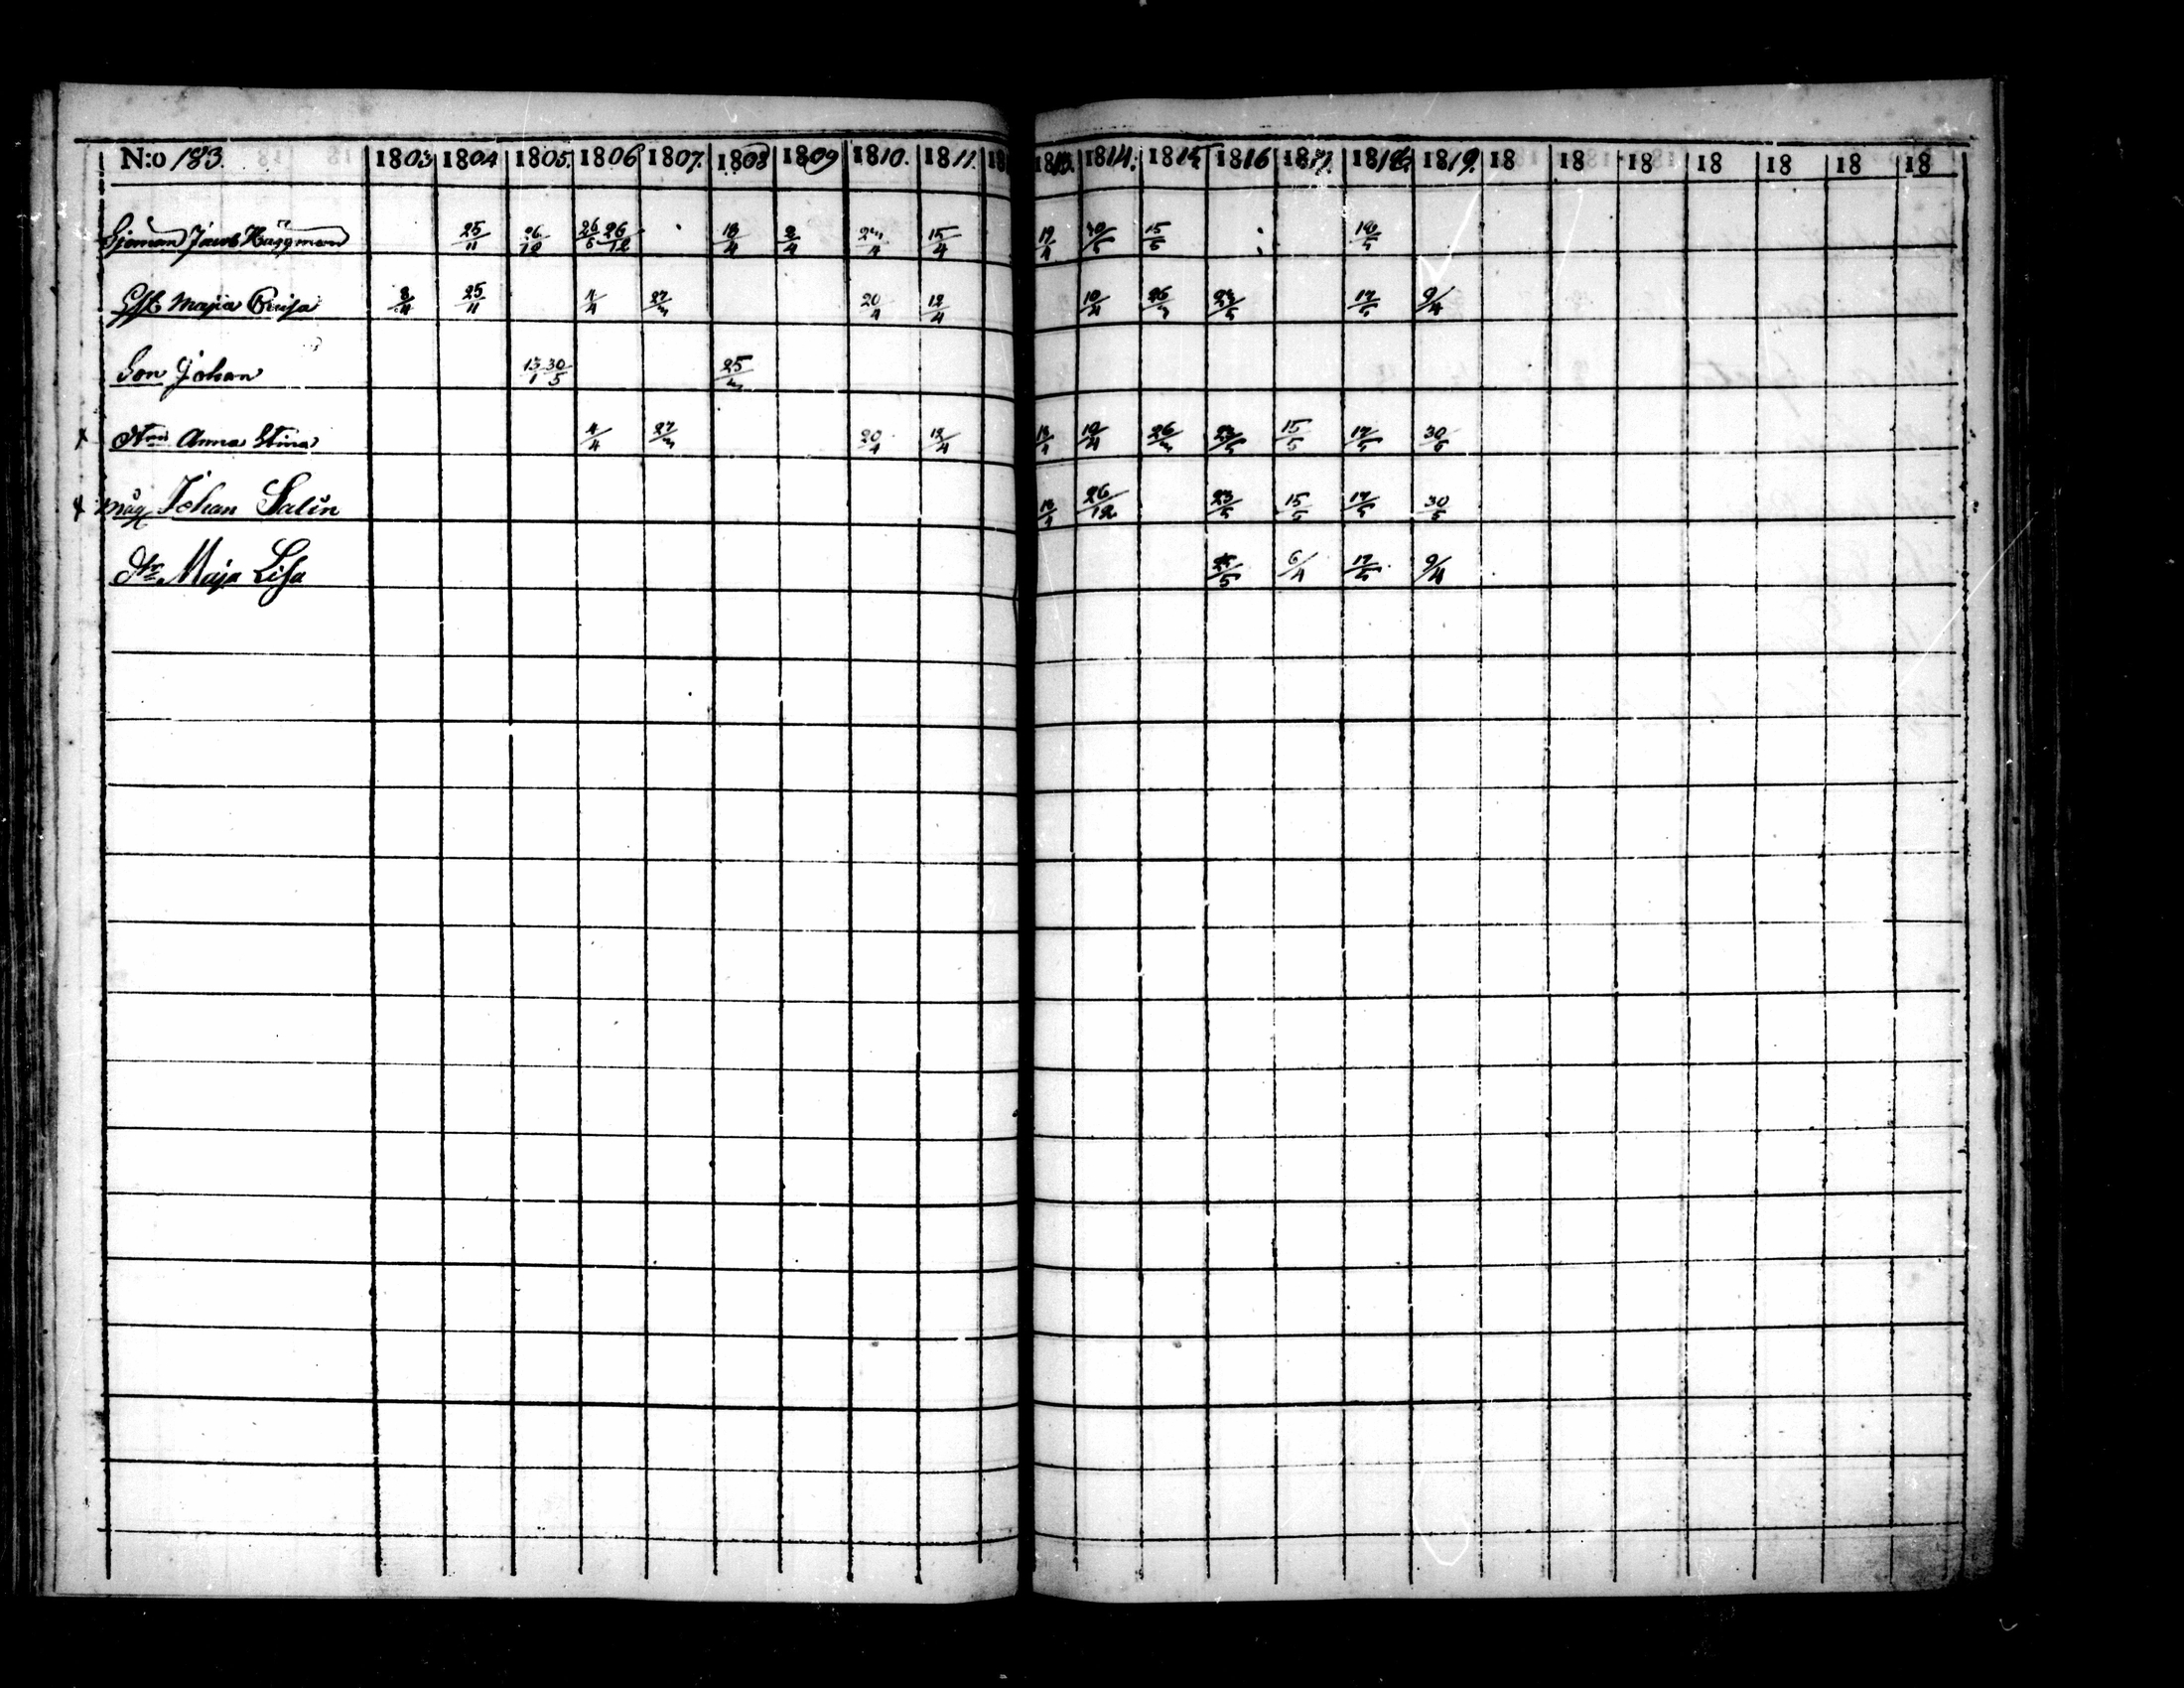 N:o 183. 1803 1804 1805. 1806 1807. 1808 1809 1810. 1811. 18 1813. 1814. 1815 1816 1817. 1818. 1819. 18 18 18 18 18 18 18
Sjöman Jacob Häggman 25/11 26/12 26/5 26/12 13/4 2/4 15/4 19/4 10/5 15/5 16/5
Maja 25/11 4/4 27/3 20/4 12/4 10/4 26/3 23/5 17/5 9/4
Son Johan 13/1 30/5 25/3
Anna Stina 4/4 27/3 20/4 12/4 13/4 10/4 26/3 23/5 15/5 17/5 30/5
Måg Johan Salin 13/4 26/12 23/5 15/5 17/5 30/5
Dr Maja Lisa 6/4 17/5 9/4